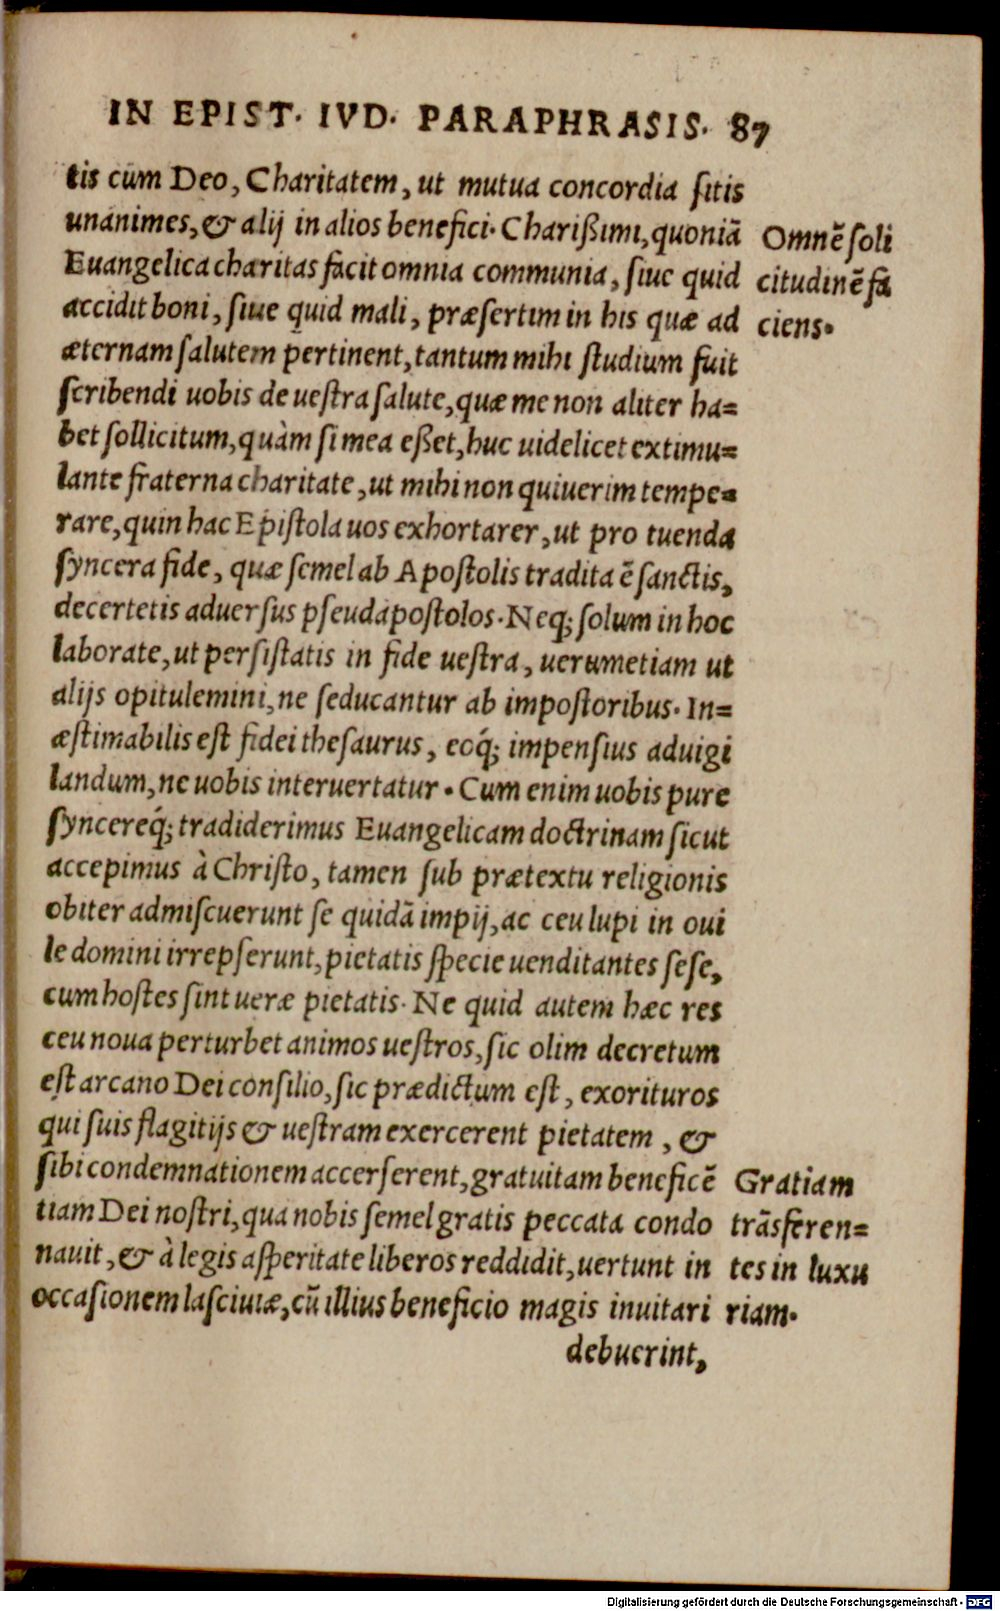 IN EPIST. IVD. PARAPHRASIS. 87
tis cum Deo, Charitatem, ut mutua concordia ſitis
unanimes, & alij in alios benefici. Charißimi, quoniã
Euangelica charitas facit omnia communia, ſiue quid
accidit boni, ſiue quid mali, præſertim in his quæ ad
æternam ſalutem pertinent, tantum mihi ſtudium fuit
ſcribendi uobis de ueſtra ſalute, quæ me non aliter ha=
bet ſollicitum, quàm ſi mea eßet, huc uidelicet extimu=
lante fraterna charitate, ut mihi non quiuerim tempe=
rare, quin hac Epiſtola uos exhortarer, ut pro tuenda
ſyncera fide, quæ ſemel ab Apoſtolis tradita ẽ ſanctis,
decertetis aduerſus pſeudapoſtolos. Neq; ſolum in hoc
laborate, ut perſiſtatis in fide ueſtra, uerumetiam ut
alijs opitulemini, ne ſeducantur ab impoſtoribus. In=
æſtimabilis eſt fidei theſaurus, eoq́; impenſius aduigi
landum, ne uobis interuertatur. Cum enim uobis pure
ſyncereq́; tradiderimus Euangelicam doctrinam ſicut
accepimus à Chriſto, tamen ſub prætextu religionis
obiter admiſcuerunt ſe quidã impij, ac ceu lupi in oui
le domini irrepſerunt, pietatis ſpecie uenditantes ſeſe,
cum hoſtes ſint ueræ pietatis. Ne quid autem hæc res
ceu noua perturbet animos ueſtros, ſic olim decretum
eſt arcano Dei conſilio, ſic prædictum eſt, exorituros
qui ſuis flagitijs & ueſtram exercerent pietatem, &
ſibi condemnationem accerſerent, gratuitam beneficẽ
tiam Dei noſtri, qua nobis ſemel gratis peccata condo
nauit, & à legis aſperitate liberos reddidit, uertunt in
occaſionem laſciuiæ, cũ illius beneficio magis inuitari
debuerint,
Omnẽ ſoli
citudinẽ fa
ciens.
Gratiam
trãsferen=
tes in luxu
riam.
Digitalisierung gefördert durch die Deutsche Forschungsgemeinschaft - DFG